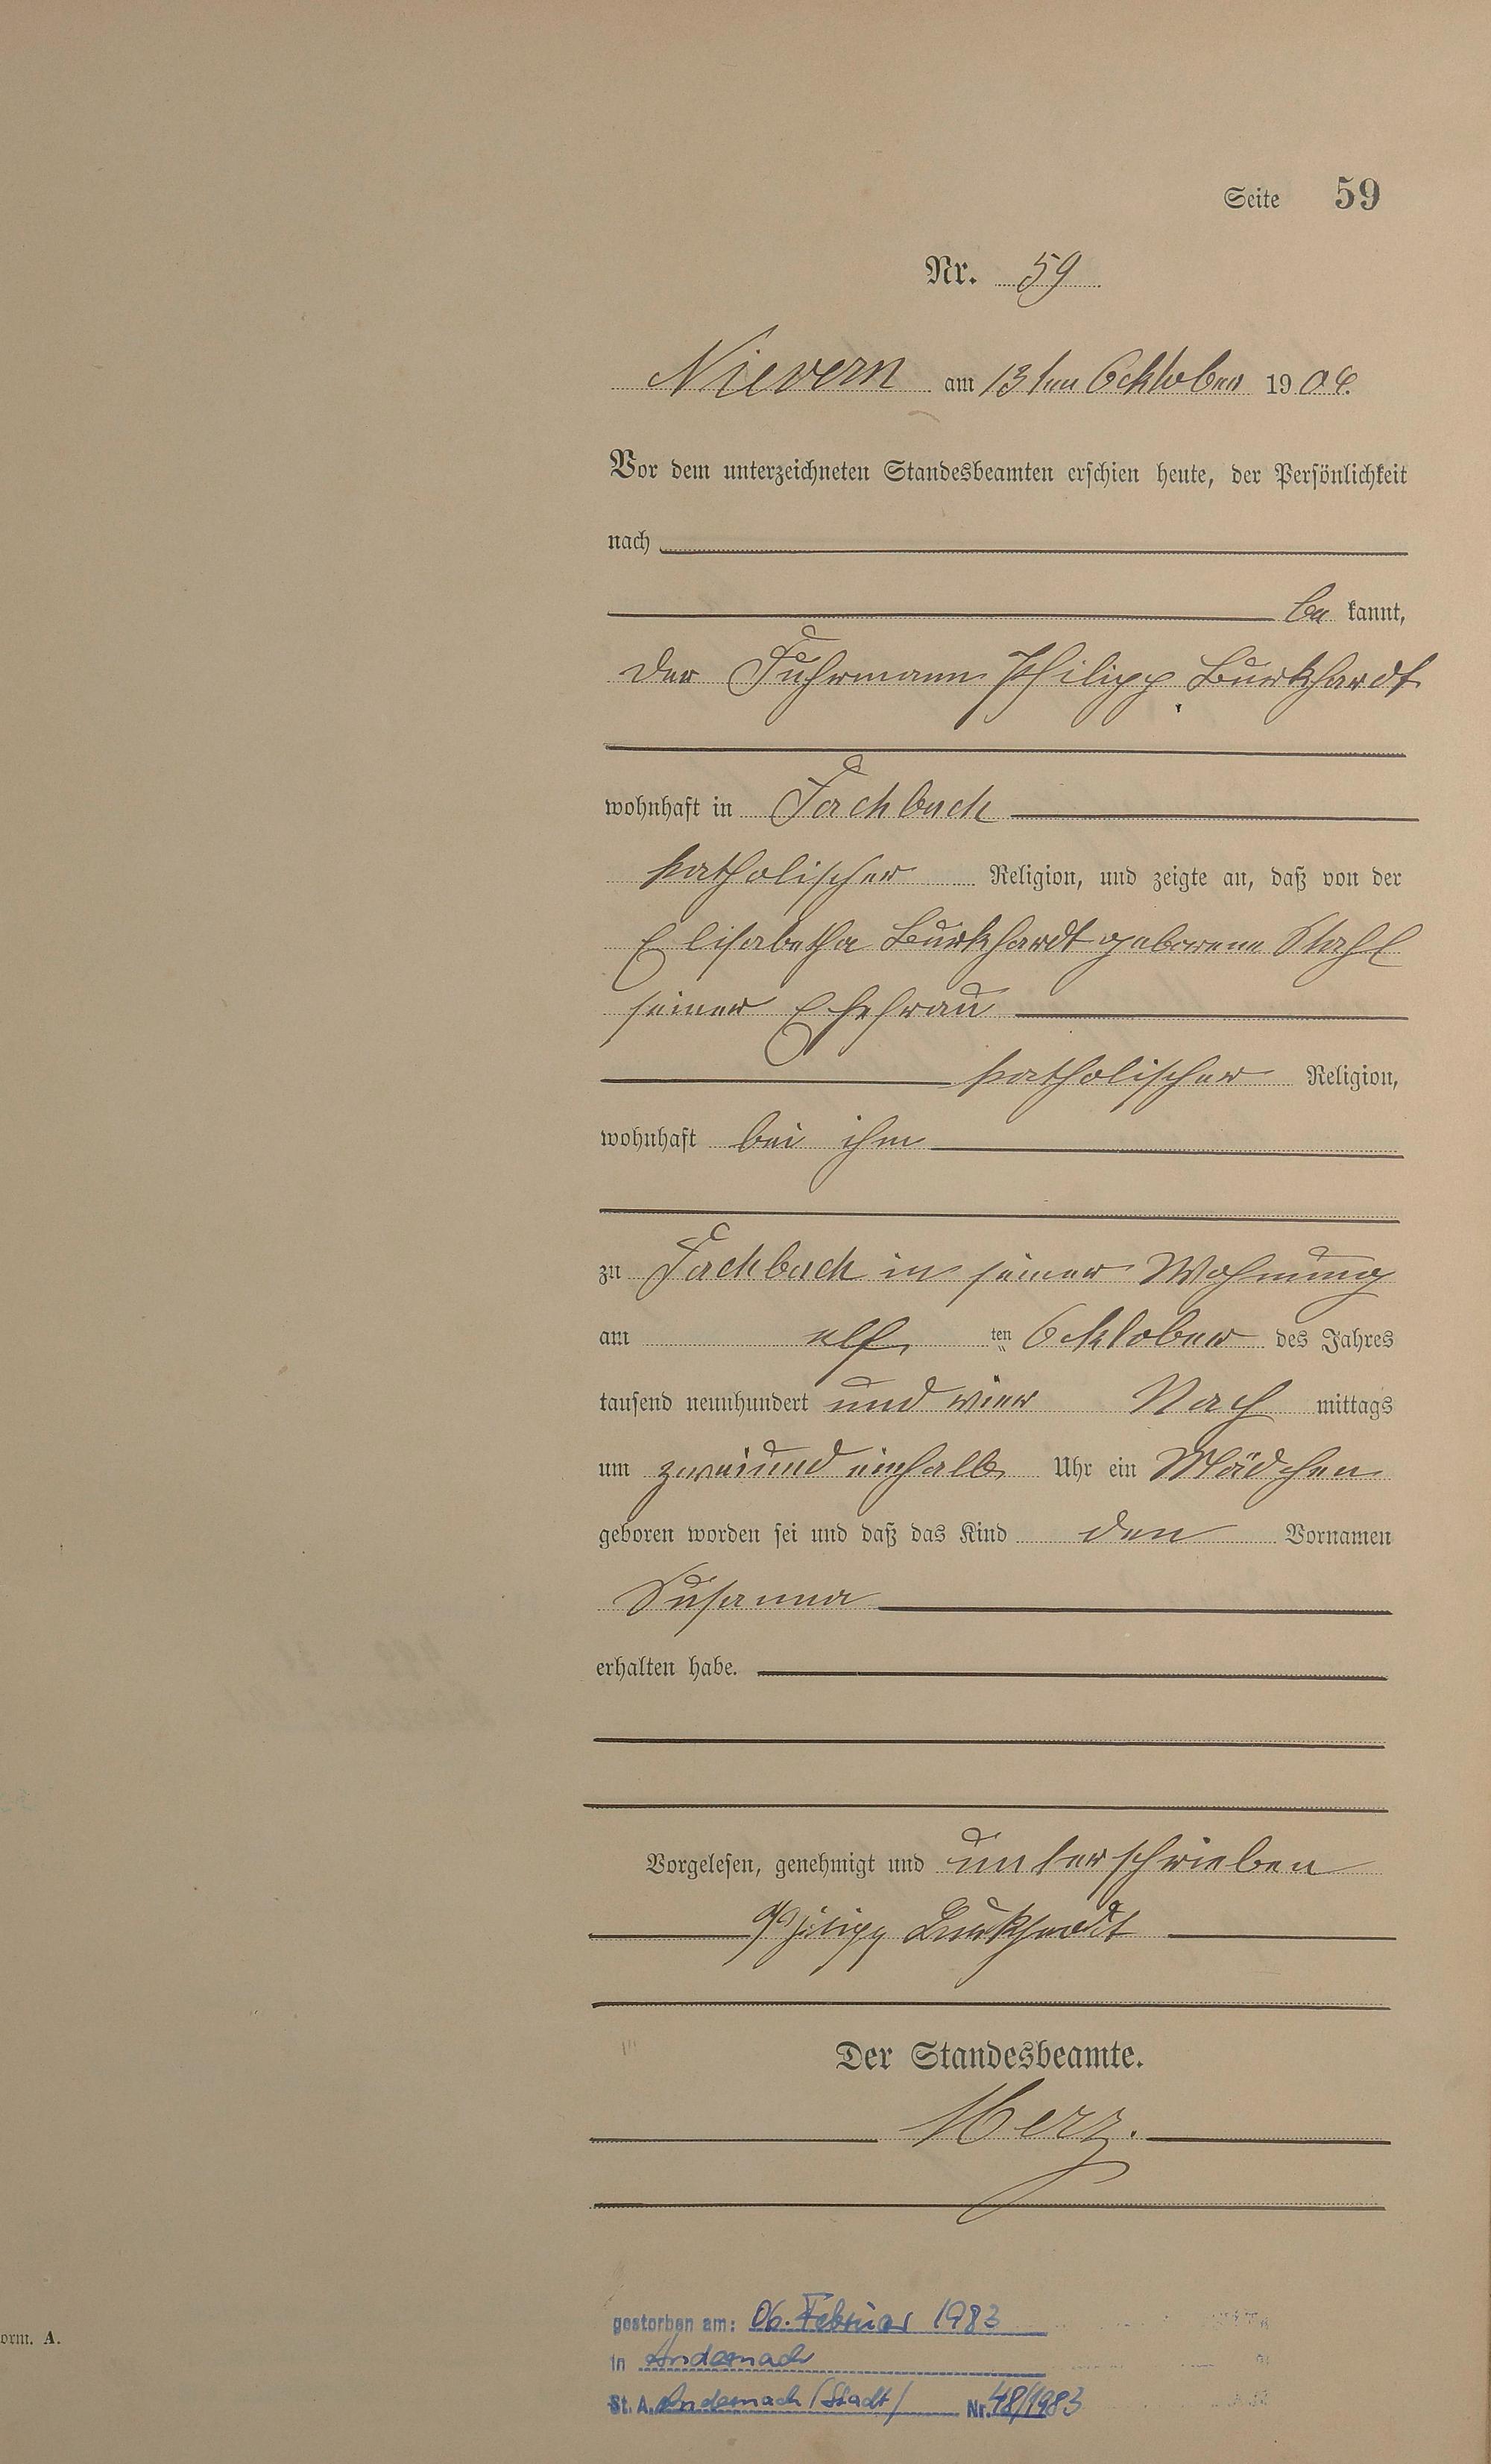 Seite 59
Nr. 59
Nievern am 13ten Ocktober 1904.
Vor dem unterzeichneten Standesbeamten erschien heute, der Persönlichkeit
nach
be kannt,
der Fuhrmann Philipp Burkhardt
wohnhaft in Fachbach
katholischer Religion, und zeigte an, daß von der
Elisabetha Burkhardt geborene Stahl
seiner Ehefrau
katholischer Religion,
wohnhaft bei ihm
zu Fachbach in seiner Wohnung
am elf ten Ocktober des Jahres
tausend neunhundert und vier Nach mittags
um zweiundeinhalb Uhr ein Mädchen
geboren worden sei und daß das Kind den Vornamen
Susanna
erhalten habe.
Vorgelesen, genehmigt und unterschrieben
Philipp Burkhardt
Der Standesbeamte.
Merz.
gestorben am: 06. Februar 1983
orm. A.
in Andernach
St. A. Andernach (Stadt) Nr. 48/1983